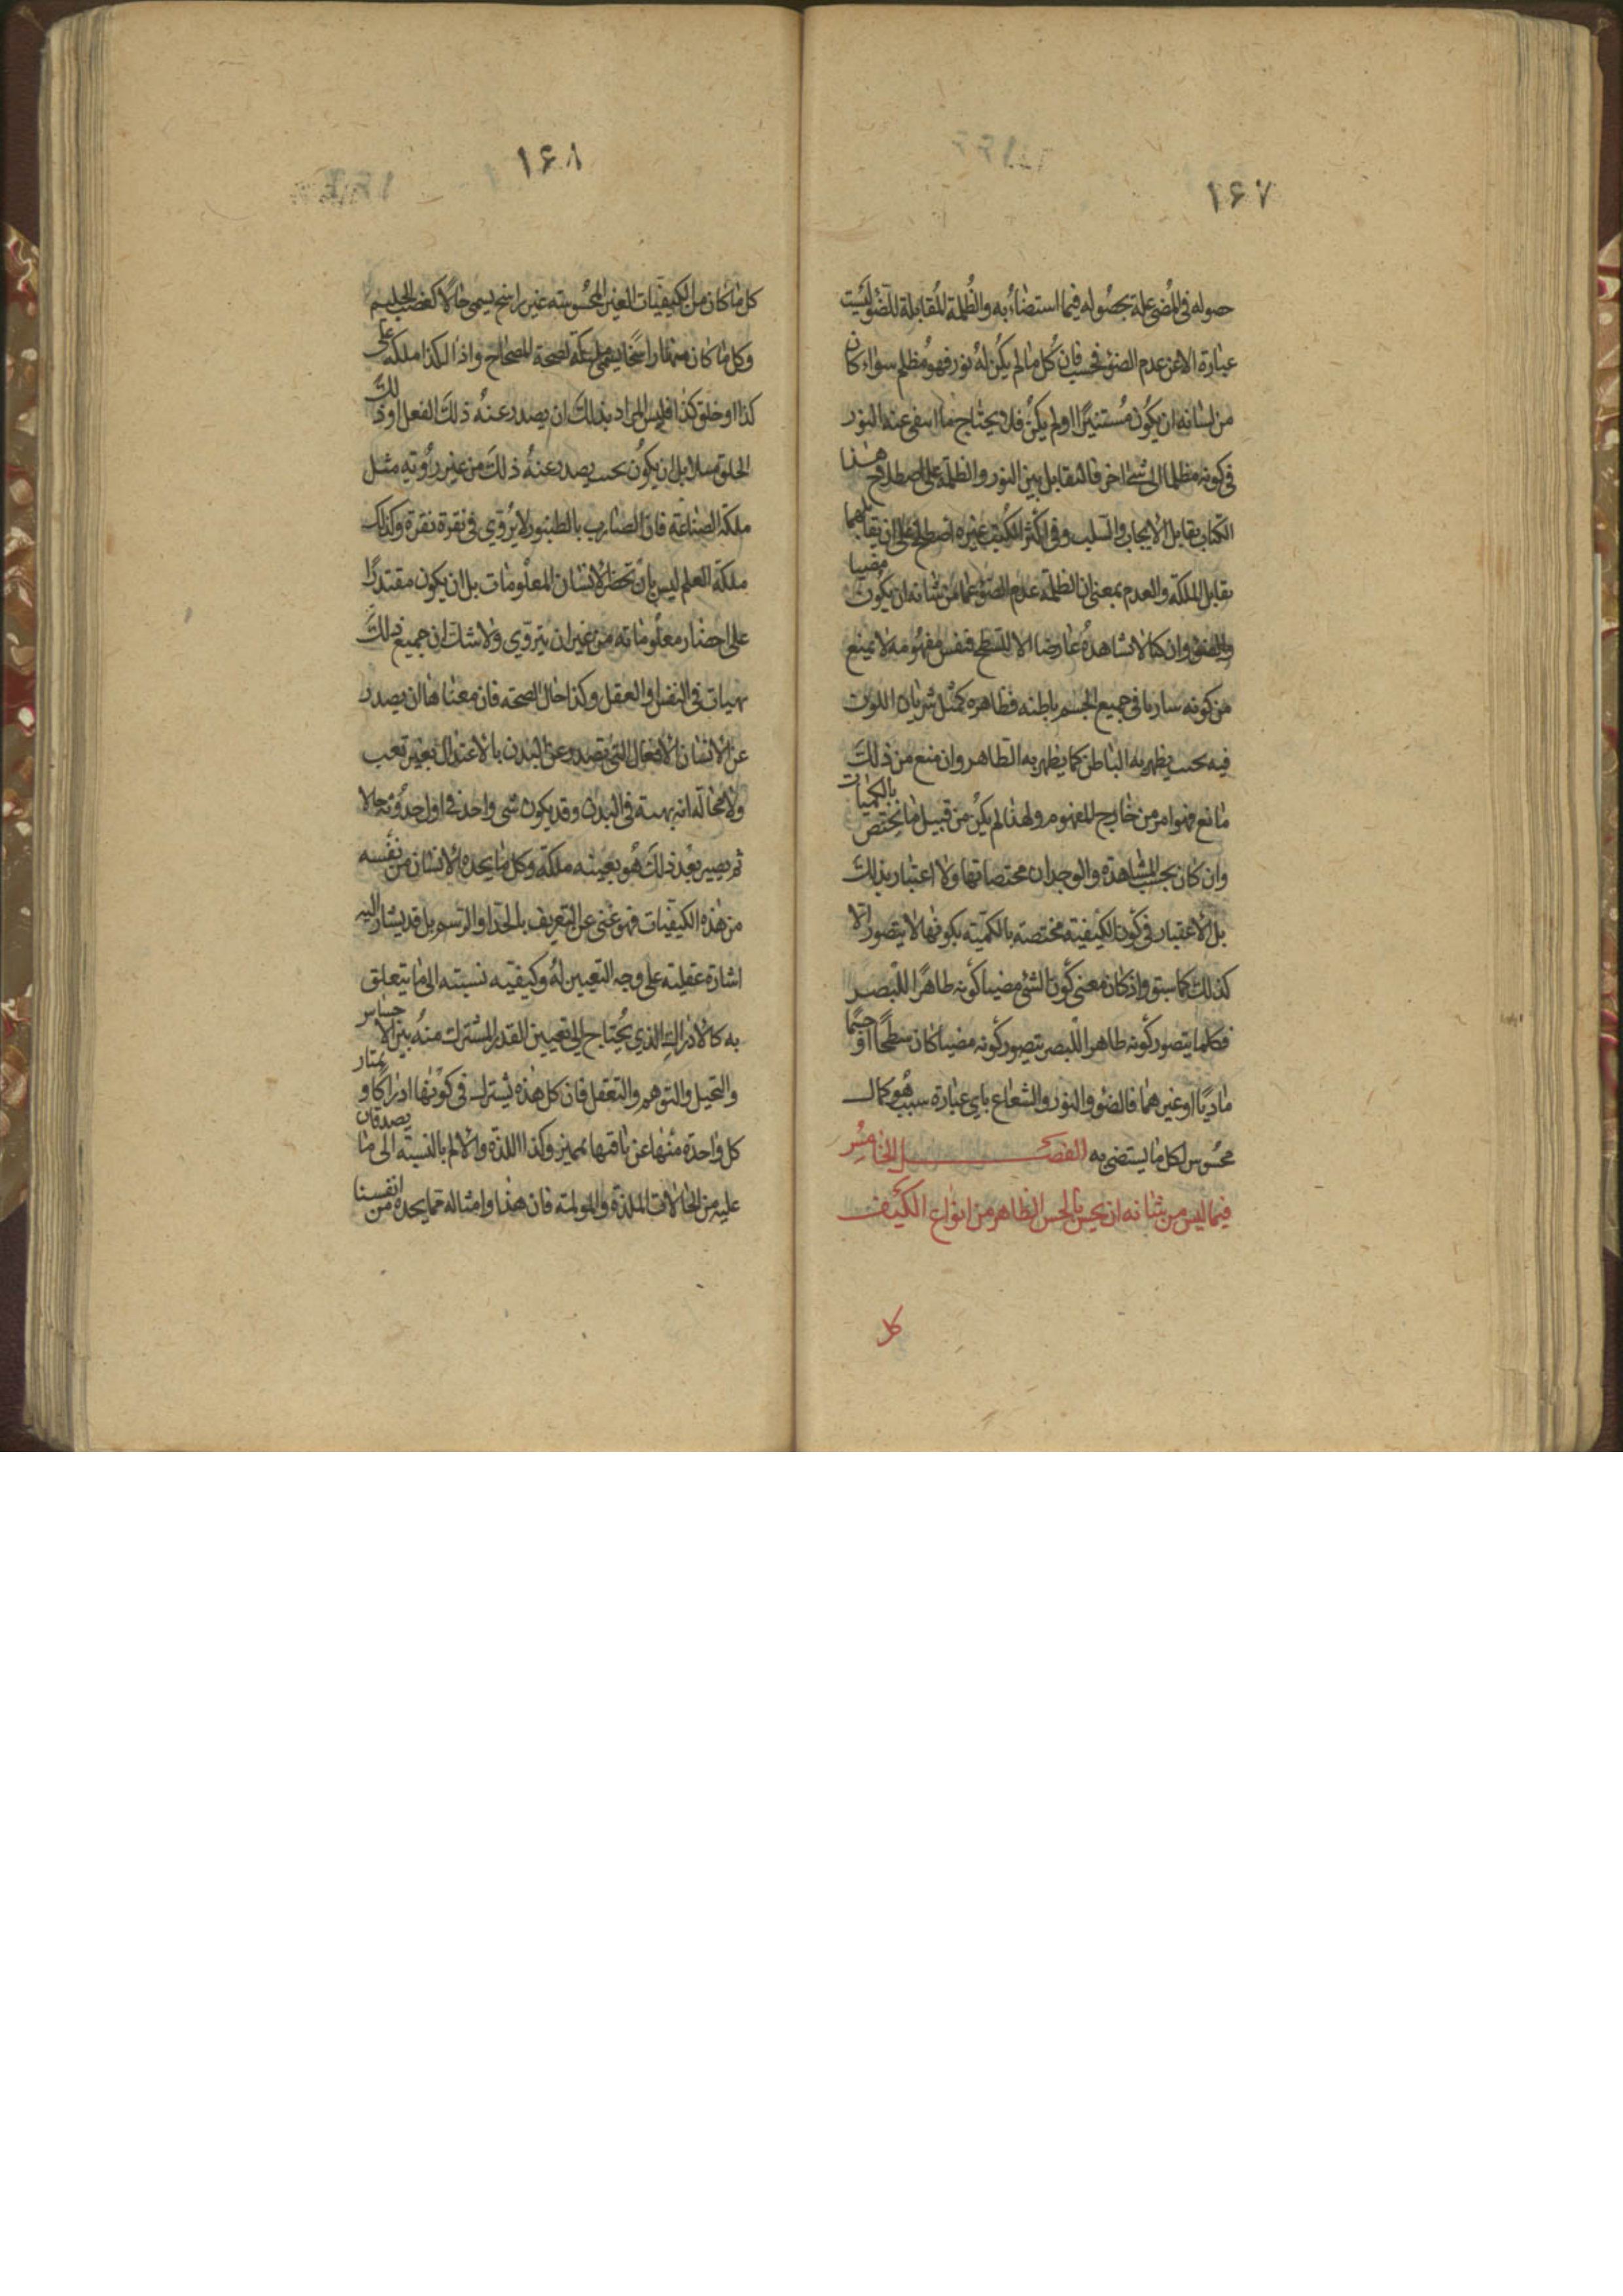 ۱۶۷
حصوله فی المضی علة بحصوله فیما استضاء به والظلمة المقابلة للضوء لیست
عبارة الا عن عدم الضوء فحسب فان کل ما لم یکن له نور فهو مظلم سواء کان
من شانه ان یکون مستنیرا او لم یکن فلا یحتاج ما انتفی عنه النور
فی کونه مظلما الی شیء اخر فالتقابل بین النور والظلمة علی اصطلاح هذا
الکتاب تقابل الایجاب والسلب وفی اکثر الکتب غیره اصطلح علی ان تقابلهما
تقابل الملکة والعدم بمعنی ان الظلمة عدم الضوء عما من شانه ان یکون مضیا
والضوء وان کنا لا نشاهده عارضا الا للسطح فنفس مفهومه لا یمنع
من کونه ساریا فی جمیع الجسم باطنه فظاهره کمثل سریان اللون
فیه بحیث یظهر به الباطن کما یظهر به الظاهر وان منع من ذلک
مانع فهو امر من خارج المفهوم ولهذا لم یکن من قبیل ما یختص بالکمیات
وان کان بحسب المشاهدة والوجدان مختصا بها ولا اعتبار بذلک
بل الاعتبار فی کون الکیفیة مختصة بالکمیة بکونها لا یتصور الا
کذلک کما سبق واذ کان معنی کون الشئ مضیا کونه ظاهرا للبصر
فکلما یتصور کونه ظاهرا للبصر یتصور کونه مضیا کان سطحا او جسما
مادیا او غیرهما فالضوء والنور والشعاع بای عبارة سبب هو کمال
محسوس لکل ما یستضی به الفصل الخامس
فیما لیس من شانه ان یحس بالحس الظاهر من انواع الکیف
کل
۱۶۸
کل ما کان من الکیفیات الغیر المحسوسة غیر راسخ یسمی حالا کغضب الحلیم
وکل ما کان منها راسخا یسمی ملکة کصحة المصحاح واذا لکذا ملکة علی
کذا او خلق کذا فلیس المراد بذلک ان یصدر عنه ذلک الفعل او ذلک
الخلق مثلا بل ان یکون بحیث یصدر عنه ذلک من غیر رویة مثل
ملکة الصناعة فان الضارب بالطنبور لا یروی فی نقرة نقرة وکذلک
ملکة العلم لیس بان تحضر الانسان المعلومات بل ان یکون مقتدرا
علی احضار معلوماته من غیر ان یتروی ولا شک ان جمیع ذلک
هیات فی النفس او العقل وکذا حال الصحة فان معناها ان یصدر
عن الانسان الافعال التی تصدر عن البدن بالاعتدال بغیر تعب
ولا محالة انه هیئة فی البدن وقد یکون شی واحد فی اول حدوثه حالا
ثم یصیر بعد ذلک هو بعینه ملکة وکل ما یجده الانسان من نفسه
من هذه الکیفیات فهو غنی عن التعریف بالحد او الرسم بل قد یشار الیه
اشارة عقلیة علی وجه التعیین له وکیفیة نسبته الی ما یتعلق
به کالادراک الذی یحتاج الی تعیین القدر المشترک منه بین الاحساس
والتخیل والتوهم والتعقل فان کل هذه یشترک فی کونها ادراکا و یمتاز
کل واحدة منها عن باقیها بممیز وکذا اللذة والالم بالنسبة الی ما یصدقان
علیه من الحالات الملذة والمولمة فان هذا وامثاله مما یجده من انفسنا